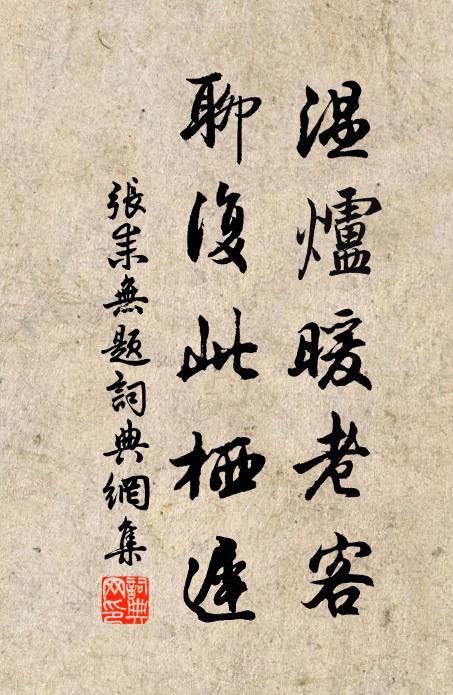 温爐暖老客
聊復此栖遲
張耒無題詞典網集
詞典
网印